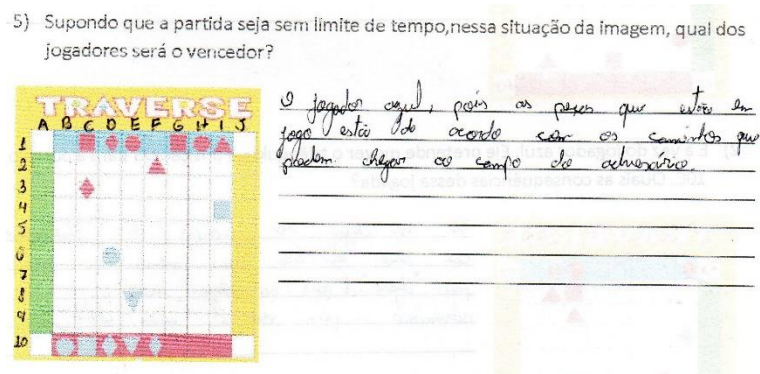 5) Supondo que a partida seja sem limite de tempo,nessa situação da imagem, qual dos
jogadores será o vencedor?
TRAVERSE
A B C D E F G H I J
1
2
3
4
5
6
7
8
9
10
O jogador azul, pois as peças que estão em
jogo estão de acordo com os caminhos que
podem chegar ao campo do adversário.